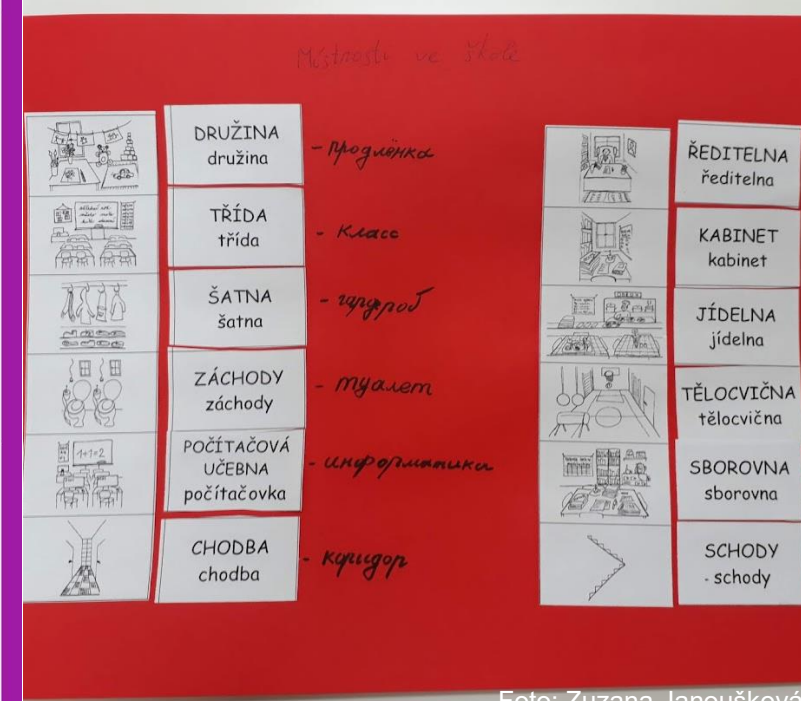 Místnosti ve škole
DRUŽINA
družina
- продлёнка
TŘÍDA
třída
- класс
ŠATNA
šatna
- гардероб
ZÁCHODY
záchody
- туалет
POČÍTAČOVÁ
UČEBNA
počítačovka
- информатика
CHODBA
chodba
- коридор
1+1=2
ŘEDITELNA
ředitelna
KABINET
kabinet
JÍDELNA
jídelna
TĚLOCVIČNA
tělocvična
SBOROVNA
sborovna
SCHODY
- schody
Foto: Zuzana Janoušková